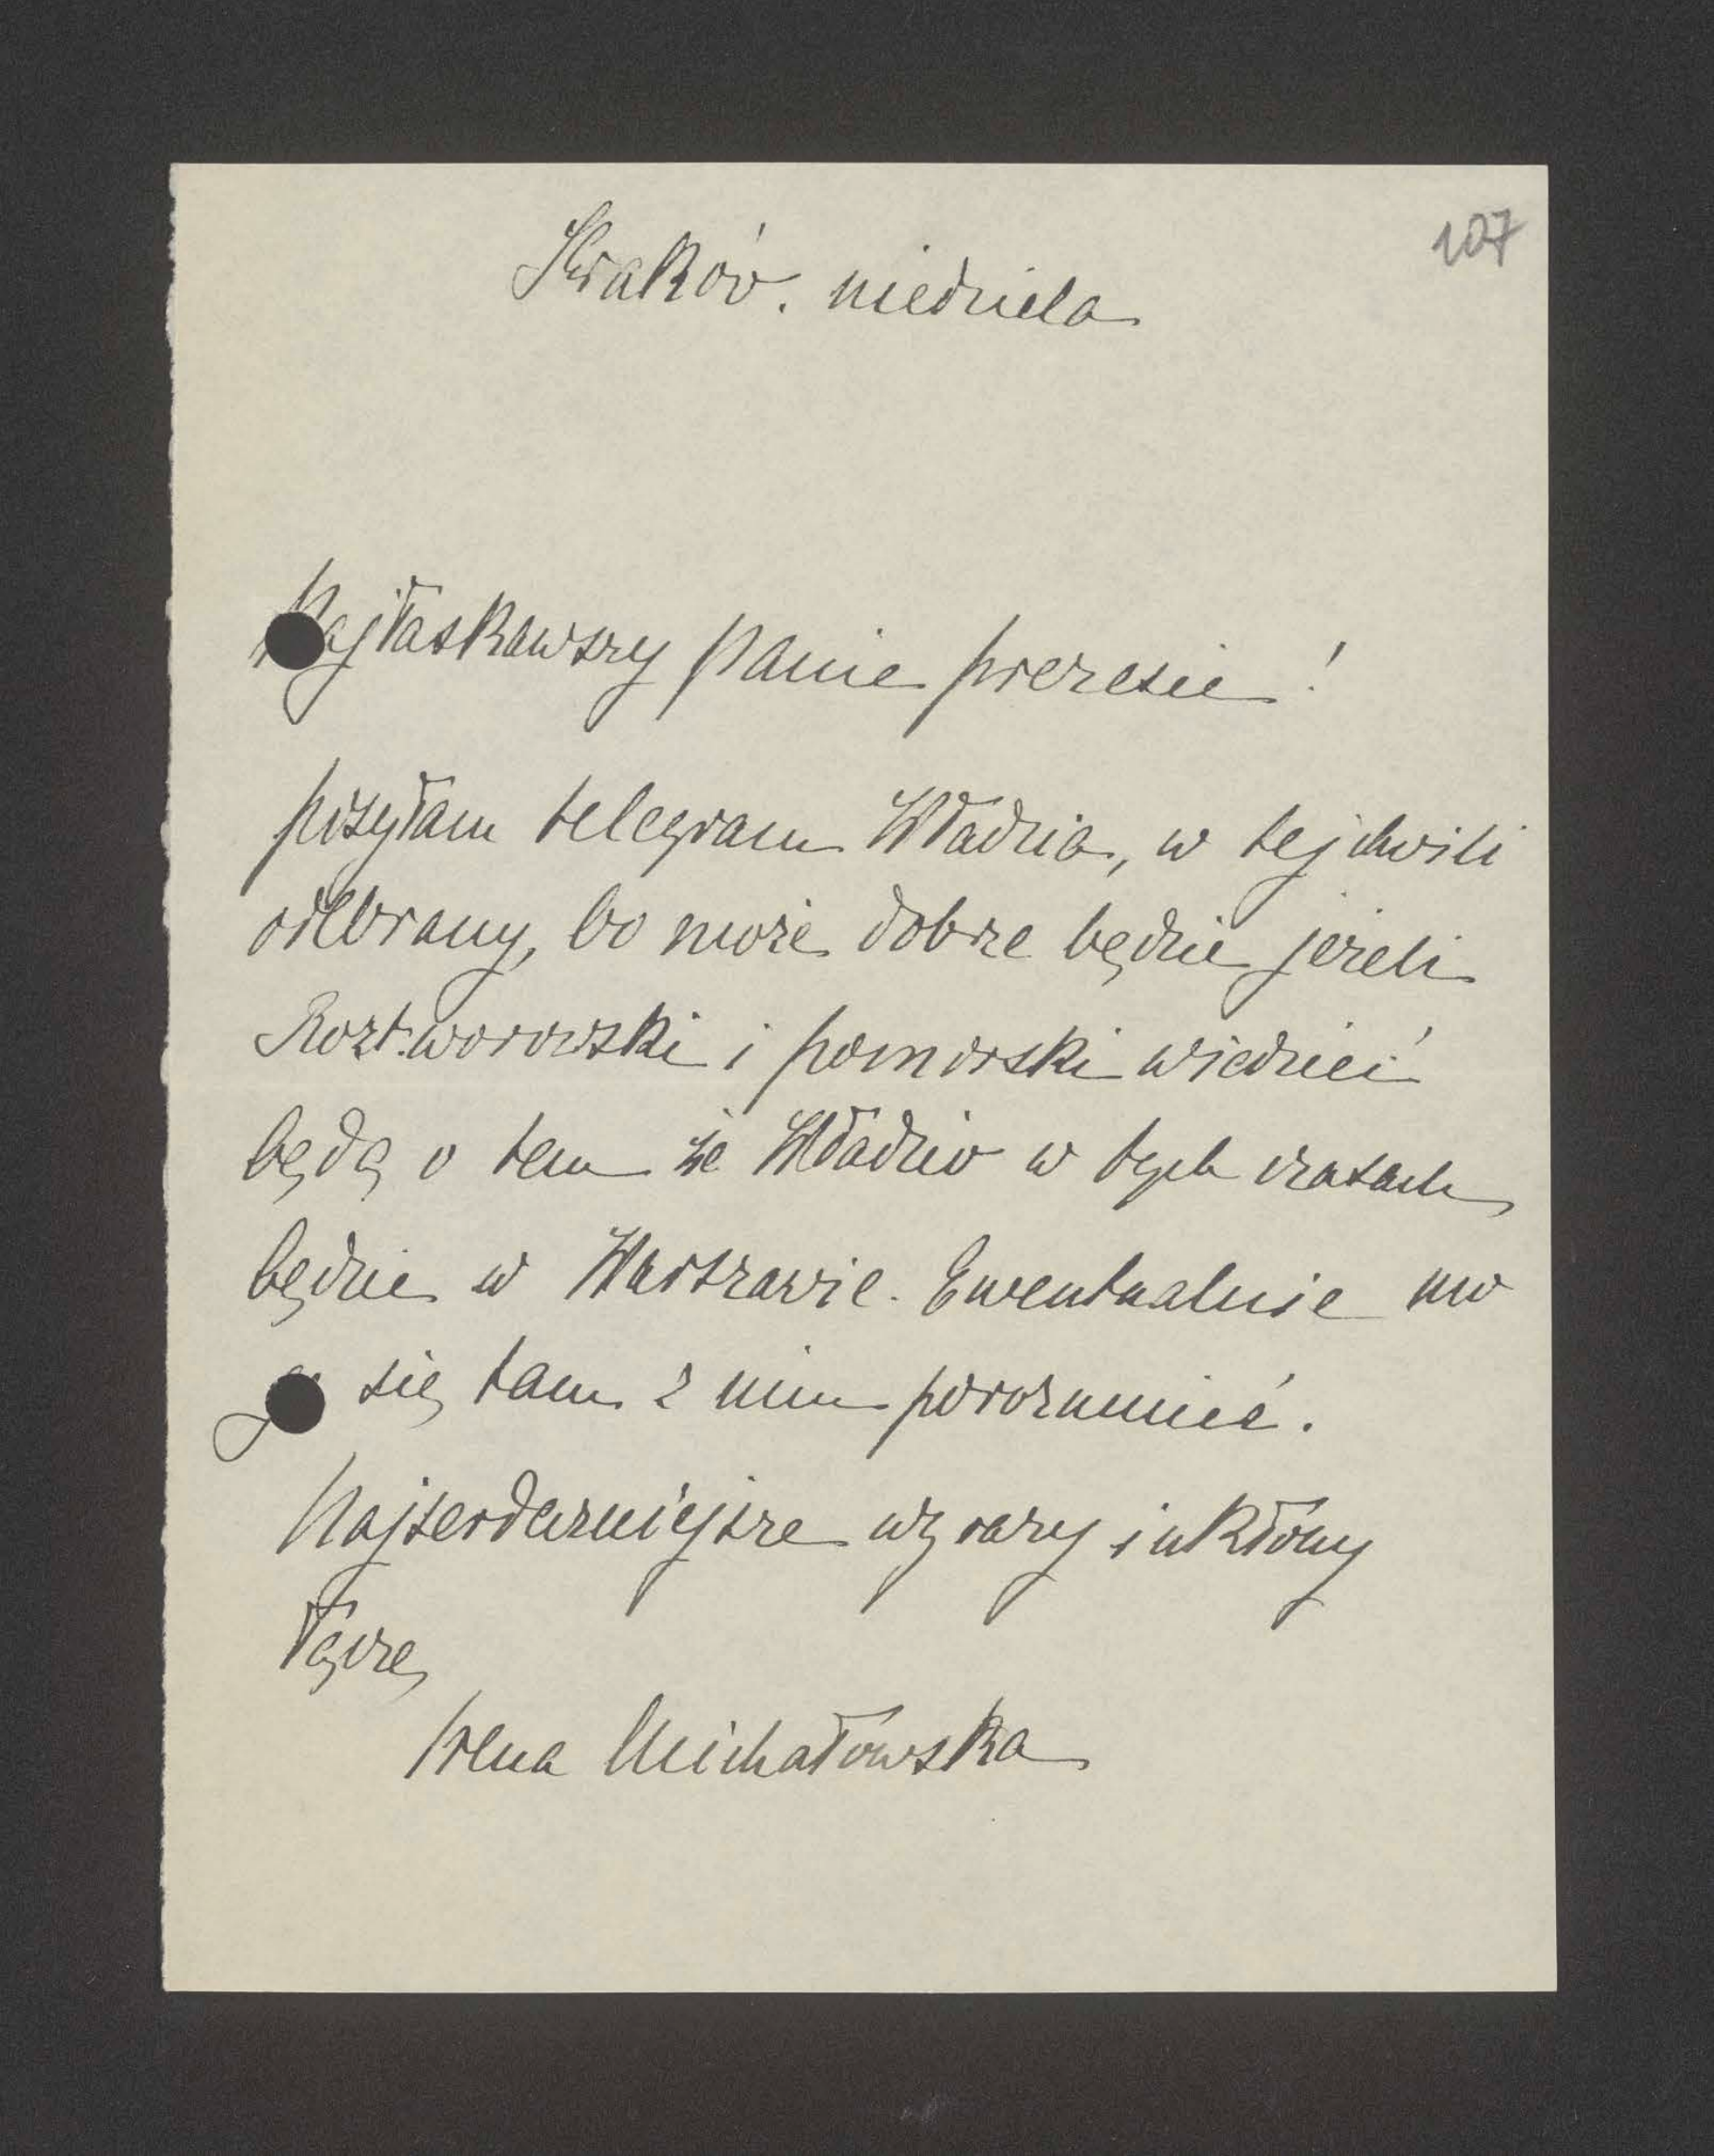 107
Kraków. niedziela
Najłaskawszy Panie prezesie!
posyłam telegram Władzia, w tej chwili
odebrany, bo może dobrze będzie jeżeli
Roztworowski i pomorski wiedzieć
będą o tem że Władzio w tych czasach
będzie w Warszawie. Ewentualnie mo
gą się tam z nim porozumieć.
Najserdeczniejsze wyrazy i ukłony
łączę
Irena Michałowska